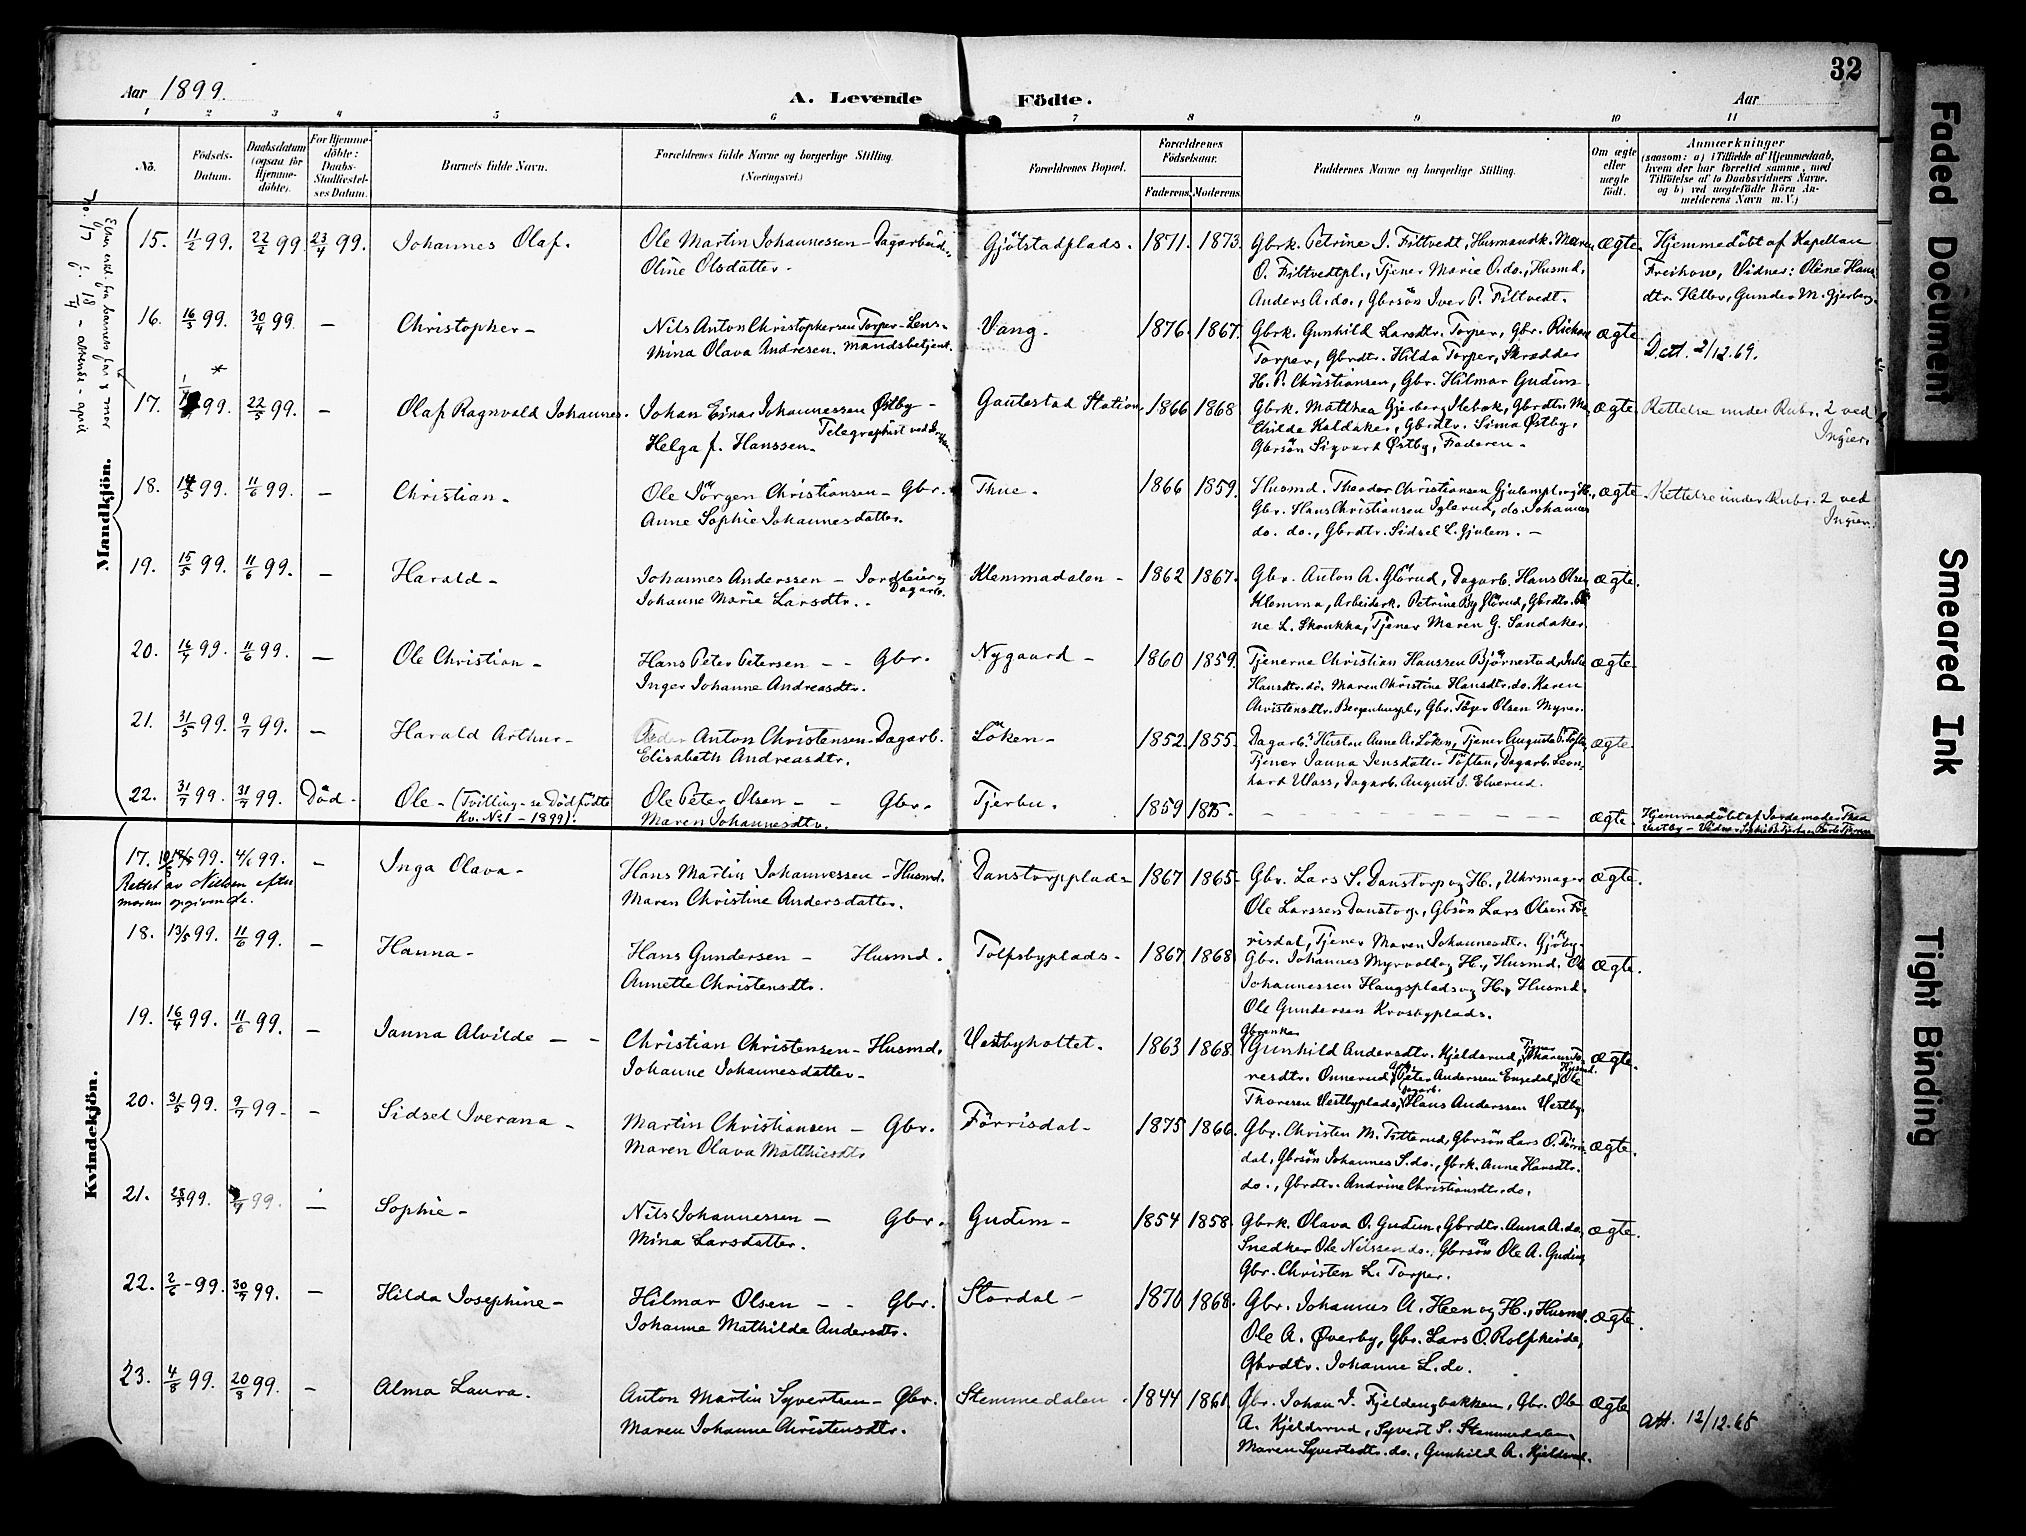 32
Aar 1899.
A. Levende Födte.
Aar
1 2 3 4 5 6 7 8 9 10 11
No.
Födsels-Datum.
Daabsdatum (ogsaa for Hjemmedöbte).
For Hjemmedöbte: Daabs-Stadfæstelses Datum.
Barnets fulde Navn.
Forældrenes fulde Navne og borgerlige Stilling. (Næringsvei.)
Forældrenes Bopæl.
Forældrenes Födselsaar.
Faderens. Moderens.
Faddernes Navne og borgerlige Stilling.
Om ægte eller uægte födt.
Anmærkninger
(saasom: a) i Tilfælde af Hjemmedaab,
hvem der har forrettet samme, med
Tilföielse af to Daabsvidners Navne,
og b) ved uegtefödte Börn Anmelderens Navn m. V.)
Mandkjön.
15. 11/2 99. 22/2 99 23/4 99. Johannes Olaf. Ole Martin Johannessen - Dagarbeid. Gjölstadplads. 1871. 1873. Gbrk. Petrine J. Filtvedt, Husmandk. Maren ægte. Hjemmedöbt af Kapellan
Oline Olsdatter. O. Filtvedtpl., Tjener Marie O. do., Husmd. Freihow, Vidner: Oline Hans
Anders A. do., Gbrsön Iver P. Filtvedt. dtr. Heller, Gunder M. Gjerberg.
16. 16/3 99. 30/4 99. - Christopher - Nils Anton Christophersen Torper - Lens- Vang. 1876. 1867. Gbrk. Gunhild Larsdtr. Torper, Gbr. Rickar ægte
Mina Olava Andresen. mandsbetjent. Torper, Gbrdtr. Hilda Torper, Skrædder Datt. 2/12.69.
H. P. Christiansen, Gbr. Hilmar Gudim
17. 99. 22/5 99. - Olaf Ragnvald Johannes. Johan Einar Johannessen Østby - Gautestad Station 1866 1868 Gbrk. Matthea Gjerberg Stebæk, Gbrdtr. Ma- ægte Rettelse under Rubr. 2 ved
Telegraphist ved thilde Kaldaker, Gbrdtr. Sima Østby, Ingier.
Helga f. Hanssen. Gbrsön Sigvard Østby, Faderen.
18. 14/5 99. 11/6 99. - Christian - Ole Jörgen Christiansen - Gbr. Thue. 1866 1859. Husmd. Theodor Christiansen Gjulempl. og H., ægte. Rettelse under Rubr. 2 ved
Anne Sophie Johannesdatter. Gbr. Hans Christiansen Iglerud, do. Johannes Ingier.
do. do., Gbrdtr. Sidsel L. Gjulem. -
19. 15/5 99. 11/6 99. - Harald - Johannes Anderssen - Jordleier og Dagarb. Klemmadalen - 1862 1867. Gbr. Anton A. Glörud, Dagarb. Hans Olsen ægte.
Johanne Marie Larsdtr. Klemma, Arbeiderk. Petrine By Glörud, Gbrdtr. Oli-
ne L. Skoukka, Tjener Maren G. Sandaker
20. 16/4 99. 11/6 99. - Ole Christian - Hans Peter Petersen - - Gbr. Nygaard - 1860 1859. Tjenerne Christian Hanssen Björnestad, Julie ægte
Inger Johanne Andreasdtr. Hansdtr. do. Maren Christine Hansdtr. do. Karen
Christensdtr. Bergenhuspl., Gbr. Töger Olsen Myrer.
21. 31/5 99. 9/7 99. - Harald Arthur - Anton Christensen - Dagarb. Löken - 1852. 1855. Dagarb. Hustru Anne A. Löken, Tjener Augusta ægte.
Elisabeth Andreasdtr. Tjener Janna Jensdatter Töften, Dagarb. Leon-
hard Wass, Dagarb. August J. Elverud.
22. 31/7 99. 31/7 99. Död. Ole - (Tvilling - se Dödfödte Kv. No 1 - 1899). Ole Peter Olsen - - Gbr. Tjerbu. 1859 1875. - - - - - - ægte. Hjemmedöbt af Jordemoder Thea
Maren Johannesdtr. Vestby -
Kvindekjön.
17. 10/5 99. 4/6 99. - Inga Olava - Hans Martin Johannessen - Husmd. Danstorpplads 1867 1865. Gbr. Lars S. Danstorp og H., Uhrmager ægte.
Rettet av Nielsen efter
morens opgivende.
Maren Christine Andersdatter. Ole Larssen Danstorp, Gbsön Lars Olsen För-
risdal, Tjener Maren Johannesdtr. Gjöby.
18. 13/5 99. 11/6 99. - Hanna - Hans Gundersen - Husmd. Tolfsbyplads - 1867 1868 Gbr. Johannes Myrvold og H., Husmd. Ole ægte.
Annette Christensdtr. Johannessen Haugsplads og H., Husmd.
Ole Gundersen Krosbyplads.
19. 16/4 99. 11/6 99. - Janna Alvilde - - Christian Christensen - Husmd. Vestbykottet. 1863 1868. Gbrenke Gunhild Andersdtr. Kjelderud, Tjener Maren To- ægte.
Johanne Johannesdatter - resdtr. Onnerud, Peter Anderssen Engedal, Husmd. Ole
Thoresen Vestbyplads, Dagarb. Hans Anderssen Vestby
20. 31/5 99. 9/7 99 - - Sidsel Iverana - Martin Christiansen - Gbr. Förrisdal - 1875 1866. Gbr. Christen M. Titterud, Gbrsön Lars O. Förris- ægte.
Maren Olava Matthiesdtr. dal, Gbrsön Johannes S. do., Gbrk. Anne Hansdtr.
do., Gbrdtr. Andrine Christiansdtr. do.
21. 28/5 99. 99. - Sophie - Nils Johannessen - Gbr. Gudim - 1854 1858. Gbrk. Olava O. Gudim, Gbrdtr. Anna A. do. ægte.
Mina Larsdatter. Snedker Ole Nilssen do., Gbrsön Ole A. Gudim
Gbr. Christen L. Torper.
22. 2/6 - 99. 30/7 99. - Hilda Josephine - Hilmar Olsen - - Gbr. Stordal - 1870 1868. Gbr. Johannes A. Heen og H., Husmd. ægte.
Johanne Mathilde Andersdtr. Ole A. Øverby, Gbr. Lars O. Rolfheide,
Gbrdtr. Johanne L. do.
23. 4/8 99. 20/8 99. - Alma Laura. Anton Martin Syvertsen - Gbr. Stemmedalen. 1844 1861. Gbr. Johan J. Fjeldengbakken, Gbr. Ole ægte
Maren Johanne Christensdtr. A. Kjelderud, Syvert S. Stemmedalen, Att. 12/12.65
Maren Syvertsdtr. do., Gunhild A. Kjelderud.
Faded Document
Smeared Ink
Tight Binding